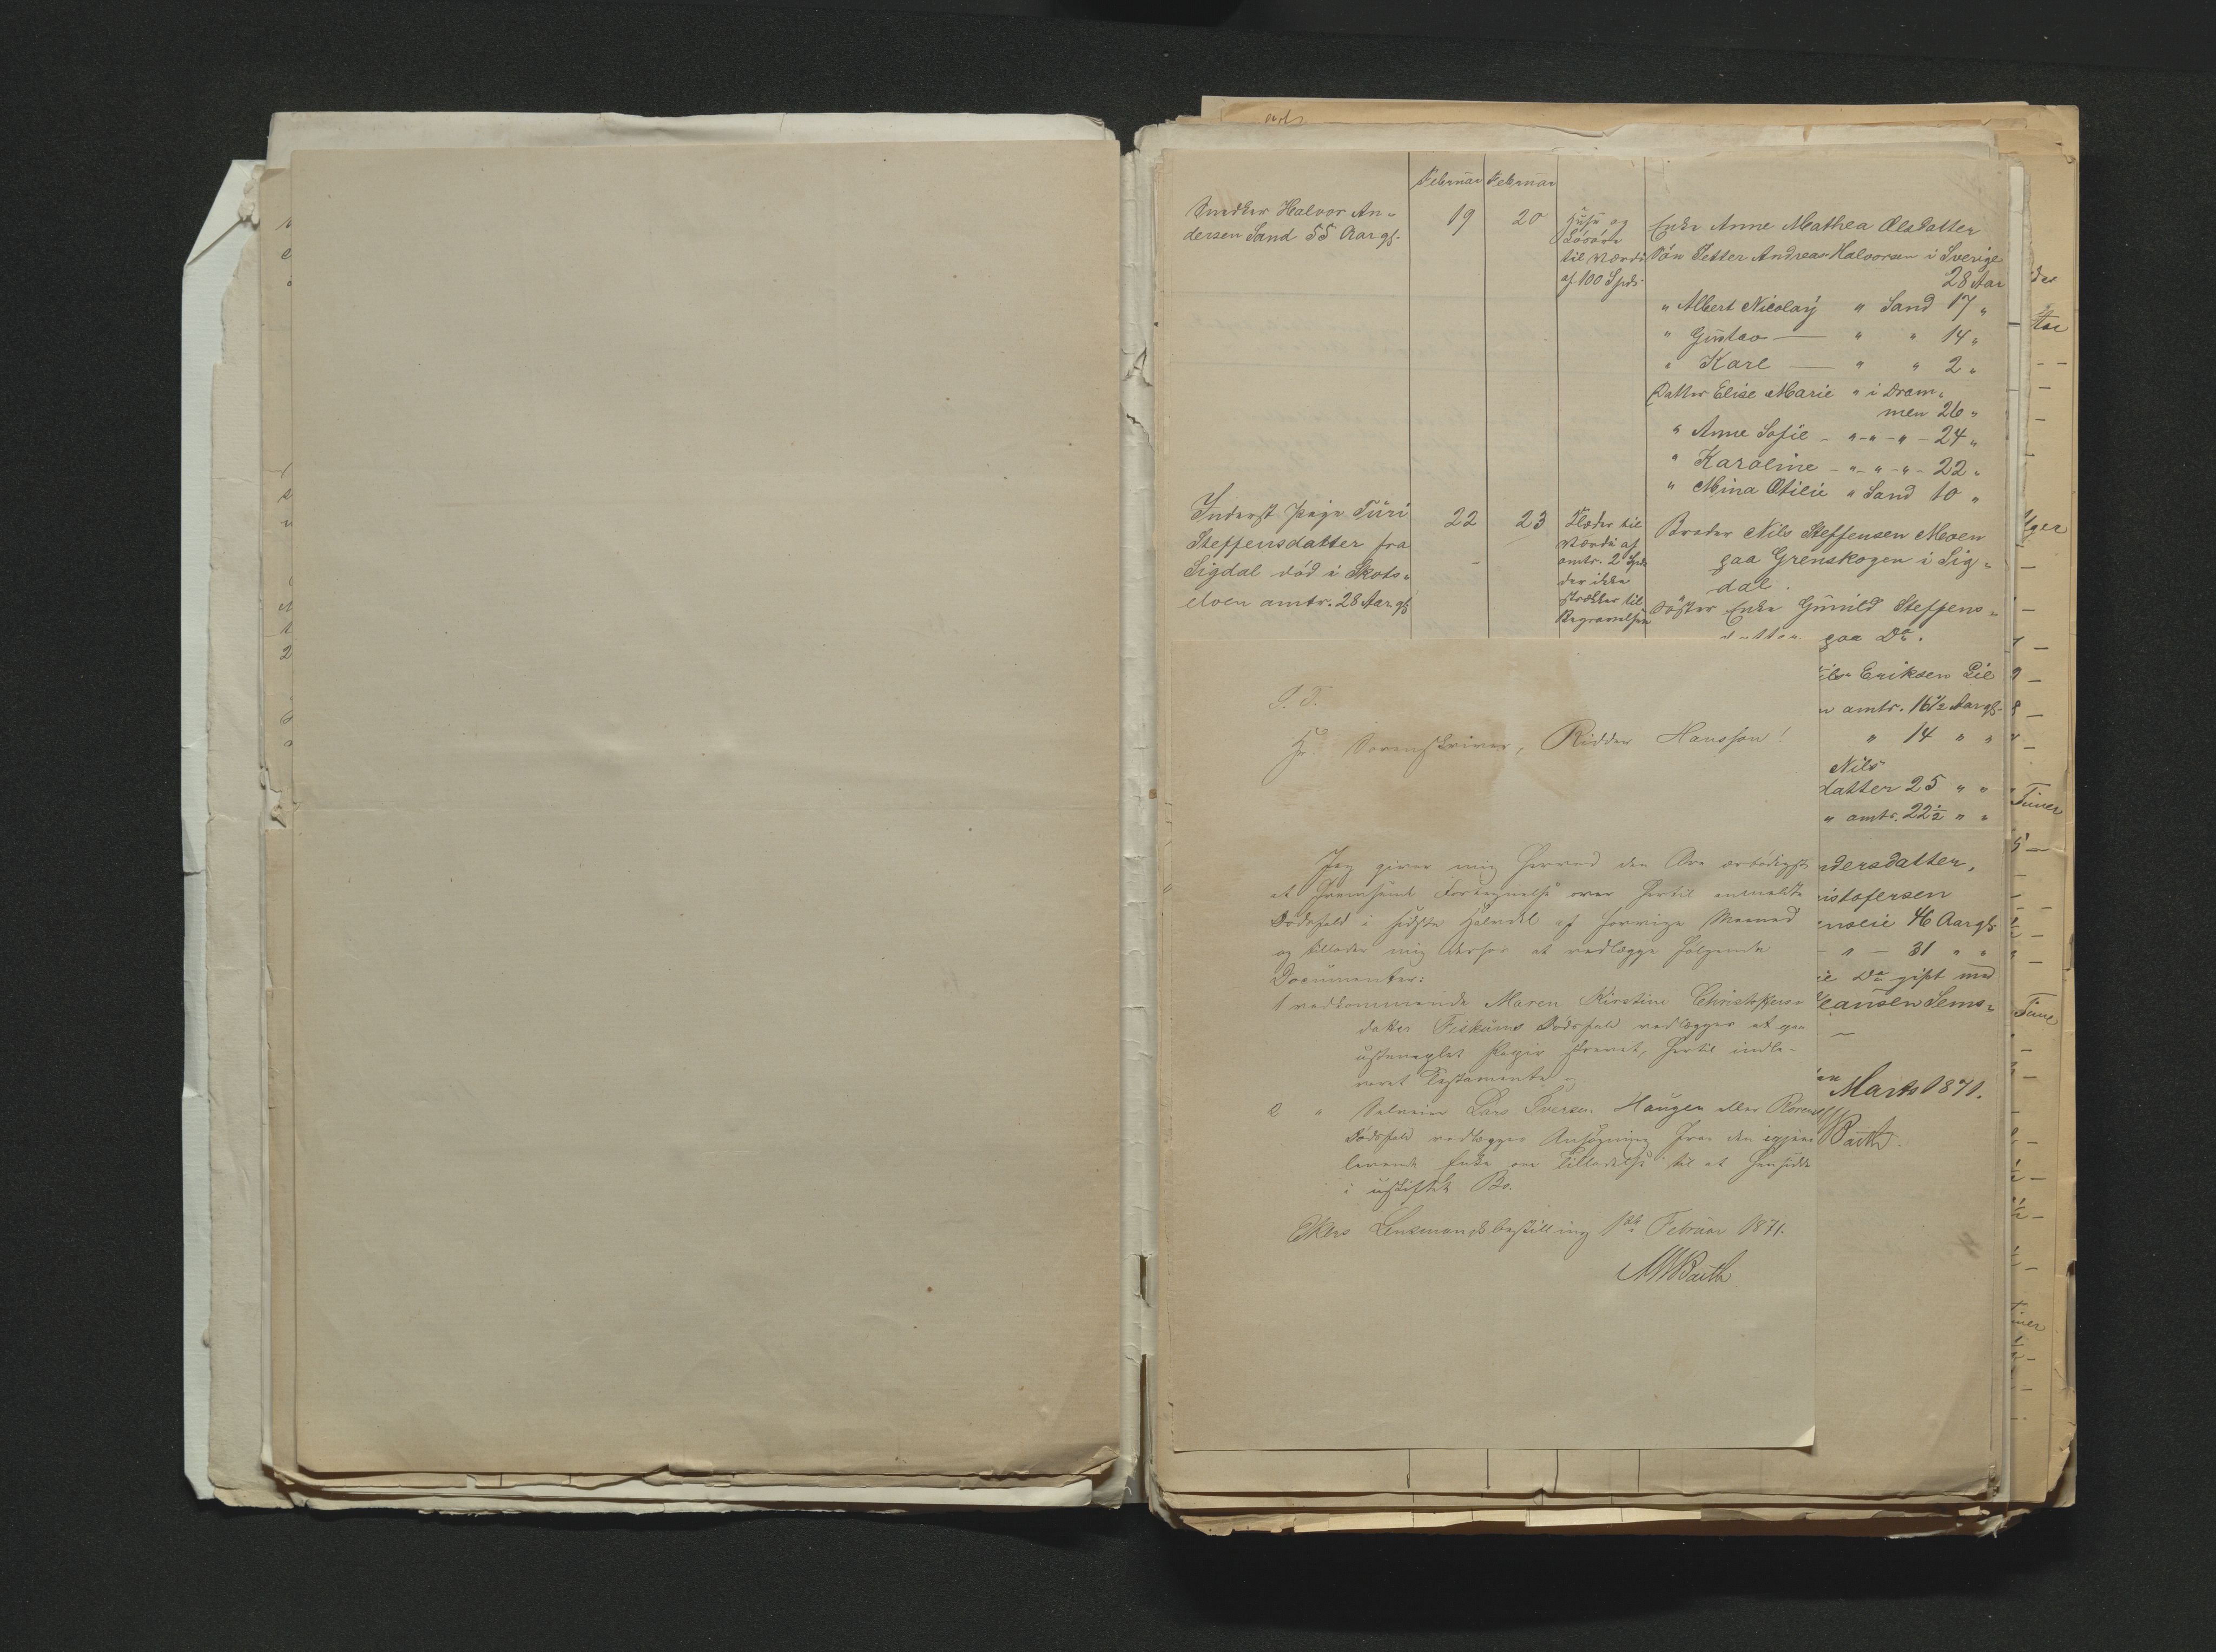 Februar Februar
Snedker Halvor An-
dersen Sand 55 Aar gl.
19 20
Huse og
Løsøre
til Værdi
af 100 Spd.
Enke Anne Mathea Olsdatter
Søn Petter Andreas Halvorsen i Sverige
28 Aar
" Albert Nicolay " Sand 17 "
" Gustav — " " 14 "
" Karl — " " 2 "
Datter Elise Marie " i Dram-
men 26 "
" Anne Sofie - " - " - " - 24 "
" Karoline - " - " - " - 22 "
" Mina Otilie " Sand 10 "
Inderst Pige Turi
Steffensdatter fra
Sigdal død i Skots-
elven amtr. 28 Aar gl.
22 23
Klæder til
Værdi af
omtr. 2 Spd.
der ikke
strækker til
Begravelsen
Broder Nils Steffensen Moen
paa Grenskogen i Sig-
dal.
Søster Enke Gunild Steffens-
datter paa Do.
Eriksen Lil
amtr. 16½ Aar gl.
" 14 " "
Nils
datter 25 " "
" amtr. 22½ " "
ndersdatter,
istofersen
enseie 46 Aar gl.
- " - 31 " "
ie Do gift med
Hansen Sems-
Marts 1871.
Barth.
S. T.
Hr. Sorenskriver, Ridder Hansson!
Jeg giver mig herved den Ære ærbødigst
at fremsende Fortegnelse over hertil anmeldte
Dødsfald i sidste Halvdel af forrige Maaned
og tillader mig derfor at vedlægge følgende
Documenter:
1 vedkommende Maren Kirstine Christoffers-
datter Fiskums Dødsfald vedlægges et paa
ustemplet Papir skrevet, hertil indle-
veret Testamente -
2 " Selveier Lars Iversen Haugen eller
Dødsfald vedlægges Ansøgning fra den igjen-
levende Enke om Tilladelse til at hensidde
i uskiftet Bo.
Ekers Lensmandsbestilling 1ste Februar 1871.
MWBarth